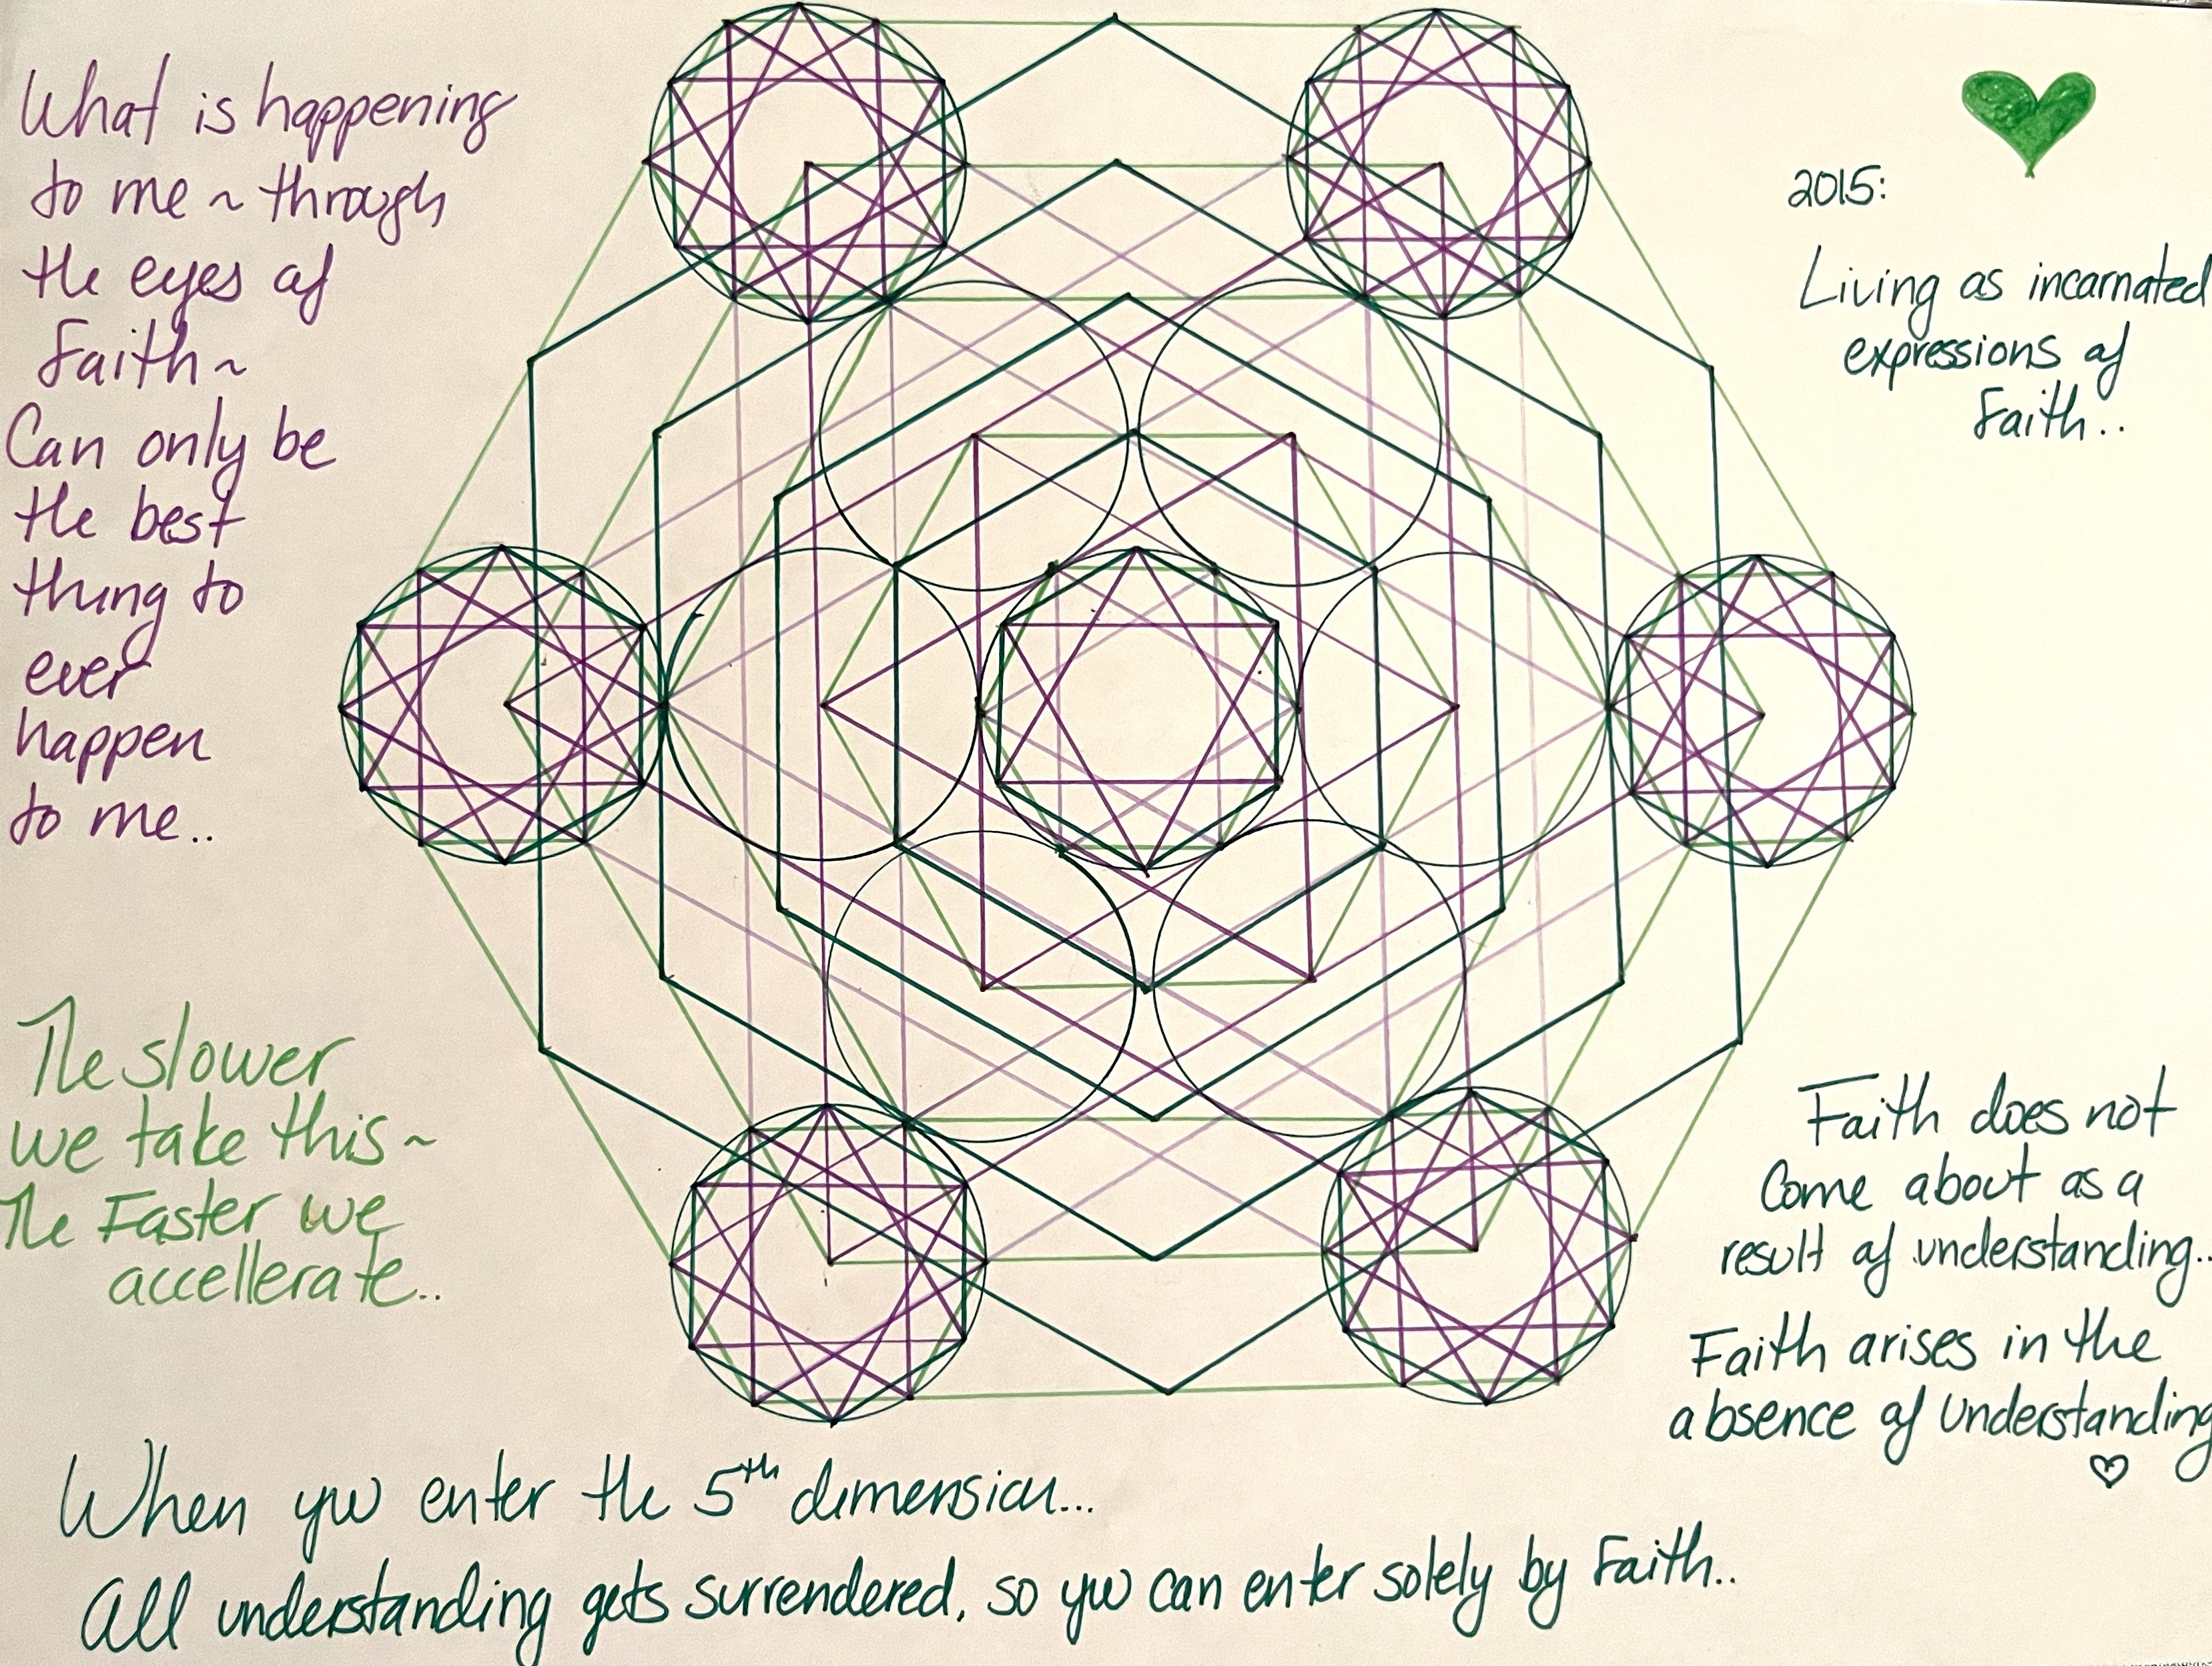 What is happening
to me ~ through
the eyes of
Faith ~
Can only be
the best
thing to
ever
happen
to me..
The slower
we take this ~
The Faster we
accellerate..
2015:
Living as incarnated
expressions of
Faith..
Faith does not
Come about as a
result of understanding..
Faith arises in the
absence of understanding
When you enter the 5th dimension...
All understanding gets surrendered, so you can enter solely by Faith..